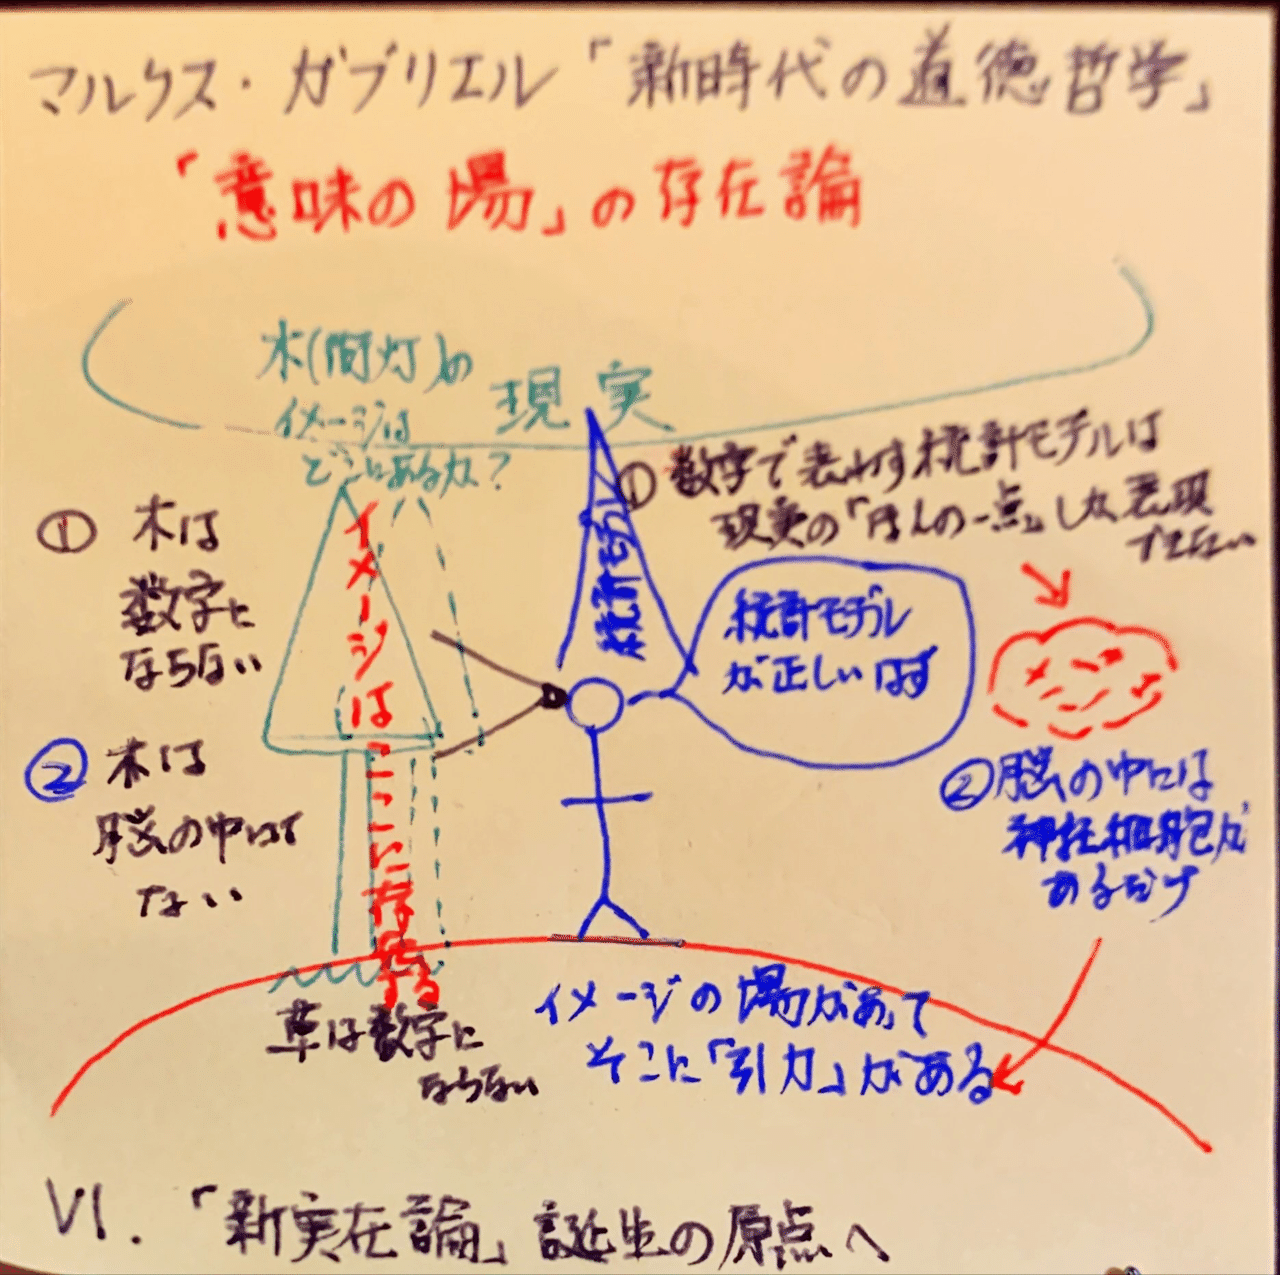 マルクス・ガブリエル「新時代の道徳哲学」
「意味の場」の存在論
木(間灯)の
イメージは
どこにあるか?
現実
① 数字で表わす統計モデルは
現実の「ほんの一点」しか表現
できない
① 木は
数字に
ならない
イメージはここに存在する
統計モデル
統計モデル
が正しいはず
② 木は
脳の中には
ない
② 脳の中には
神経細胞が
あるだけ
草は数字に
ならない
イメージの場があって
そこに「引力」がある
VI.「新実在論」誕生の原点へ